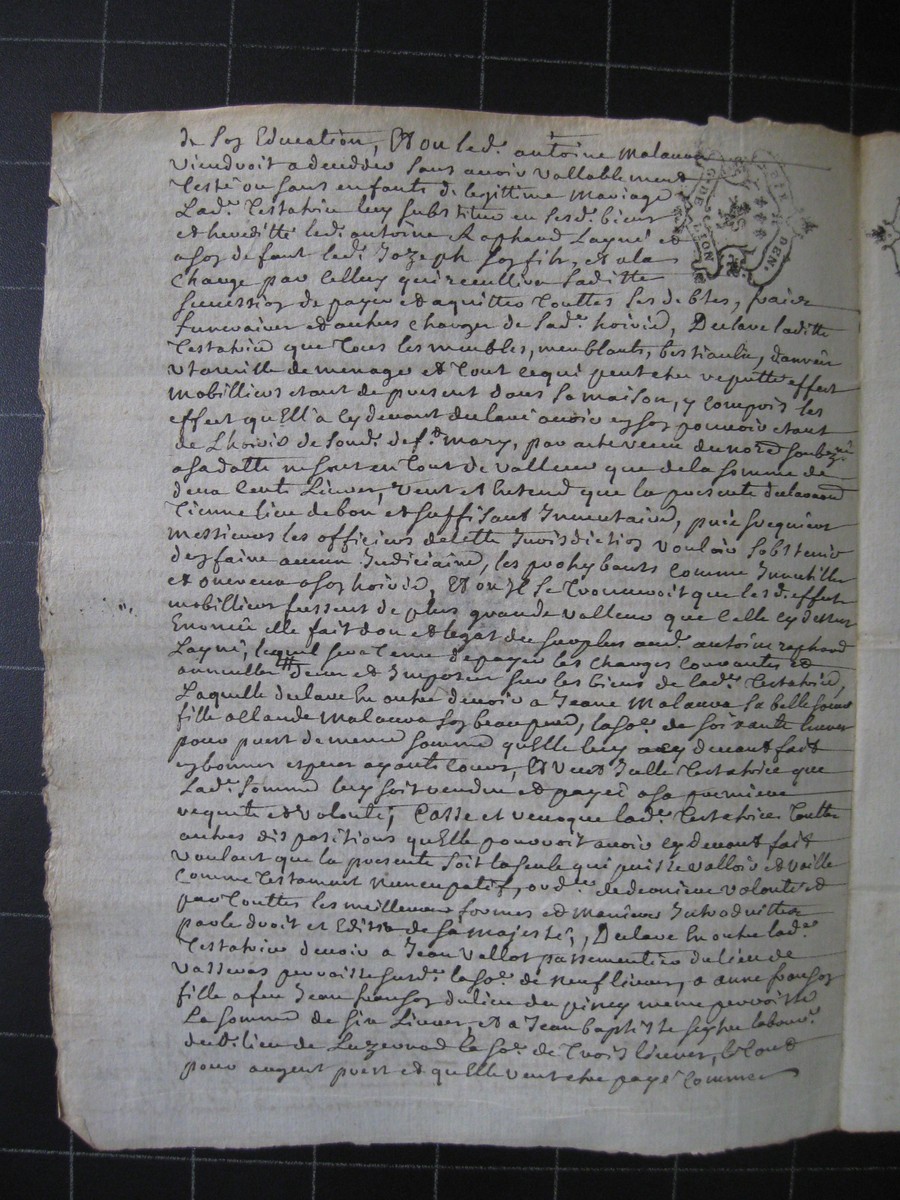 de son Education, Et ou led. antoine malaura
viendroit a decedder sans avoir vallablement
testé ou sans enfants de legittime mariage
Lad.e testatrice luy substitue en sesd. biens
et heredité led. antoine Raphaud Layné et
a son defaut led. Jozeph son fils, et a la
charge par celluy qui recullira saditte
succession de payer et aquitter touttes ses debtes, fraix
funeraires et autres charges de sad.e hoirie, Declare laditte
testatrice que tous les meubles, meublants, bestiaulx, danrées
utancille de menage et tout ce qui peut etre reputté effect
mobilliers etant de present dans sa maison, y compris les
effect qu'Ell'a cy devant declaré avoir en son pouvoir etant
de L'hoirie de sond. def.t mary, par acte receu du no.re soubz.né
a sa datte ne sont en tout de valleur que de la somme de
deux cents Livres, veut et entend que la presente declaraon
tienne lieu de bon et suffisant Inventaire, prie et requiert
messieurs les officiers de cette Jurisdiction vouloir s'obstenir
d'en faire aucun Judiciaire, les prohybants comme Inutilles
et onereux a son hoirie, Et ou il se trouveroit que lesd. effects
mobilliers fussent de plus grande valleur que celle cy dessus
Enoncée elle fait don et legat du surplus aud. antoine raphaud
Layné, lequel sera tenu de payer les charges courantes et
annuelles deues et Imposées sur les biens de lad.e testatrice,
Laquelle declare En outre devoir a Jeane Malaura sa belle soeur
fille a Claude Malaura son beau pere, la so.e de soixante livres
pour prest de meme somme qu'Elle luy a cy devant fait
en bonnes especes ayants cours, Et veut Icelle testatrice que
Lad.e somme luy soit rendue et payée a sa premiere
requitte et volonté, Casse et revoque lad.e testatrice touttes
autres dispositions qu'Elle pourroit avoir cy devant fait
voulant que la presente soit la seule qui puisse valloir et vaille
comme testament nuncupatif, ord.re de derniere volonté et
par touttes les meilleures formes et manieres Introduittes
par le droit et Edits de sa majesté, Declare En outre lad.e
testatrice devoir a Jean Vallot passementier du lieu de
Vasseras perroisse susd.e la so.e de neuf livres, a anne franson
fille a feu Jean franson du lieu du piney meme perroisse
La somme de six Livres, et a Jean baptiste labour.r
dud. lieu de Luzernod la so.e de trois livres, le tout
pour argent prest et qu'Elle veut etre payé comme
G. DE LION
DEN.